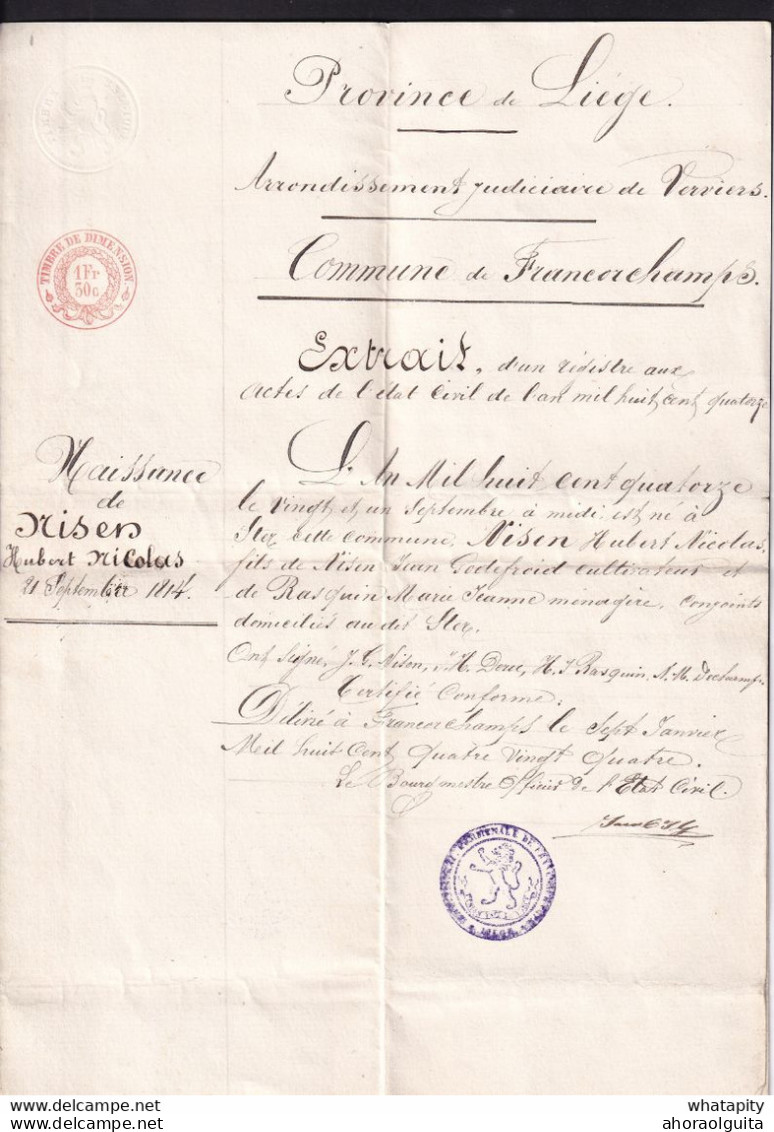 Province de Liége.
Arrondissement judiciaire de Verviers.
Commune de Francorchamps.
TIMBRE DE DIMENSION
1 Fr
30 c
Extrait, d'un régistre aux
actes de l'état Civil de l'an mil huit cent quatorze
Naissance
de
Nisen
Hubert Nicolas
21 Septembre 1814.
L'An Mil huit cent quatorze
le vingt et un Septembre à midi est né à
Ster cette commune, Nisen Hubert Nicolas,
fils de Nisen Jean Godefroid cultivateur et
de Rasquin Marie Jeanne ménagère, conjoints
domiciliés au dit Ster.
Ont Signé, J. G. Nisen, H. J. Rasquin, N. M. Dechamps
Certifié Conforme:
Délivré à Francorchamps le Sept Janvier
Meil huit Cent Quatre Vingt Quatre.
Le Bourgmestre Officier de l'Etat Civil.
COMMUNALE DE
LIEGE
whatapity
ahoraolguita
delcampe.net